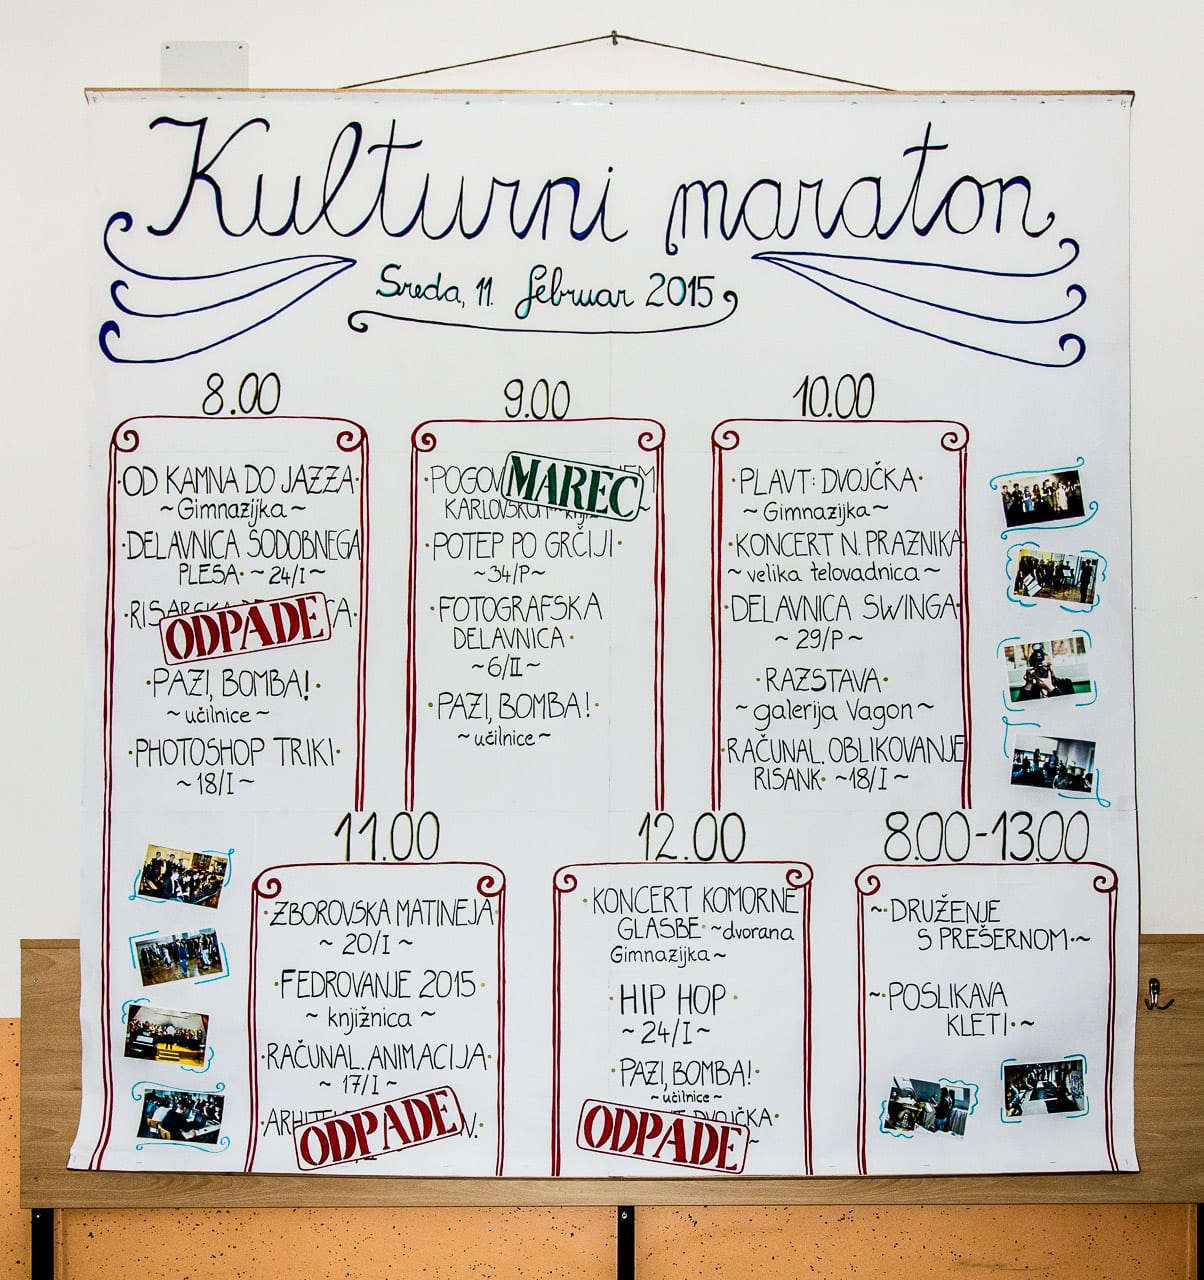 Kulturni maraton
Sreda, 11. februar 2015
8.00
·OD KAMNA DO JAZZA·
~Gimnazijka~
·DELAVNICA SODOBNEGA
PLESA· ~24/I~
ODPADE
·PAZI, BOMBA!·
~učilnice~
·PHOTOSHOP TRIKI·
~18/I~
9.00
MAREC
·POTEP PO GRČIJI·
~34/P~
·FOTOGRAFSKA
DELAVNICA·
~6/II~
·PAZI, BOMBA!·
~učilnice~
10.00
·PLAVT: DVOJČKA·
~Gimnazijka~
·KONCERT N. PRAZNIKA
~velika telovadnica~
·DELAVNICA SWINGA·
~29/P~
·RAZSTAVA·
~galerija Vagon~
·RAČUNAL. OBLIKOVANJE
RISANK· ~18/I~
11.00
·ZBOROVSKA MATINEJA·
~20/I~
·FEDROVANJE 2015·
~knjižnica~
·RAČUNAL. ANIMACIJA·
~17/I~
ODPADE
12.00
·KONCERT KOMORNE
GLASBE· ~dvorana
Gimnazijka~
·HIP HOP·
~24/I~
·PAZI, BOMBA!·
~učilnice~
DVOJČKA·
ODPADE
8.00-13.00
~·DRUŽENJE
S PREŠERNOM·~
~·POSLIKAVA
KLETI·~